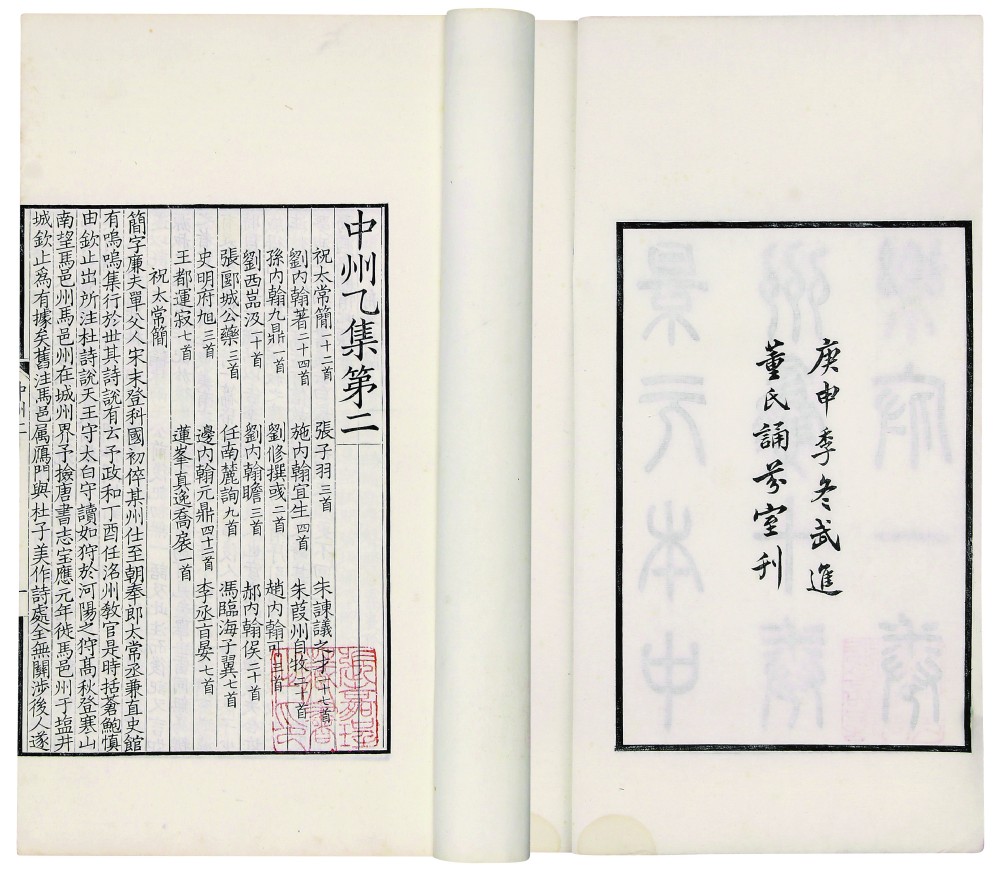 庚申季冬武進
董氏誦芬室刊
中州乙集第二
祝太常簡一十二首 張子羽三首 朱諫議之才十七首
劉內翰著二十四首 施內翰宜生四首 朱葭州自牧二十首
孫內翰九鼎一首 劉修撰彧二首 趙內翰可三首
劉西嵓汲一十首 劉內翰瞻三首 郝內翰俁二十首
張郾城公藥三首 任南麓詢九首 馮臨海子翼七首
史明府旭三首 邊內翰元鼎四十二首 李丞旨晏七首
王都運寂七首 蓮峯真逸喬扆一首
祝太常簡
簡字廉夫單父人宋末登科國初倅某州仕至朝奉郎太常丞兼直史館
有嗚嗚集行於世其詩說有云予政和丁酉任洺州教官是時括蒼鮑慎
由欽止出所注杜詩說天王守太白守讀如狩於河陽之狩髙秋登寒山
南望馬邑州馬邑州在城州界予撿唐書志宝應元年徙馬邑州于塩井
城欽止爲有據矣舊注馬邑属鴈門與杜子美作詩處全無關涉後人遂
中州二 一